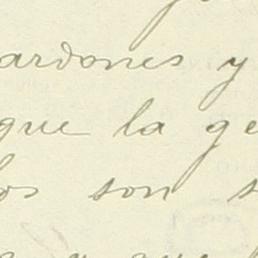 ardones y
que la ge
los son s